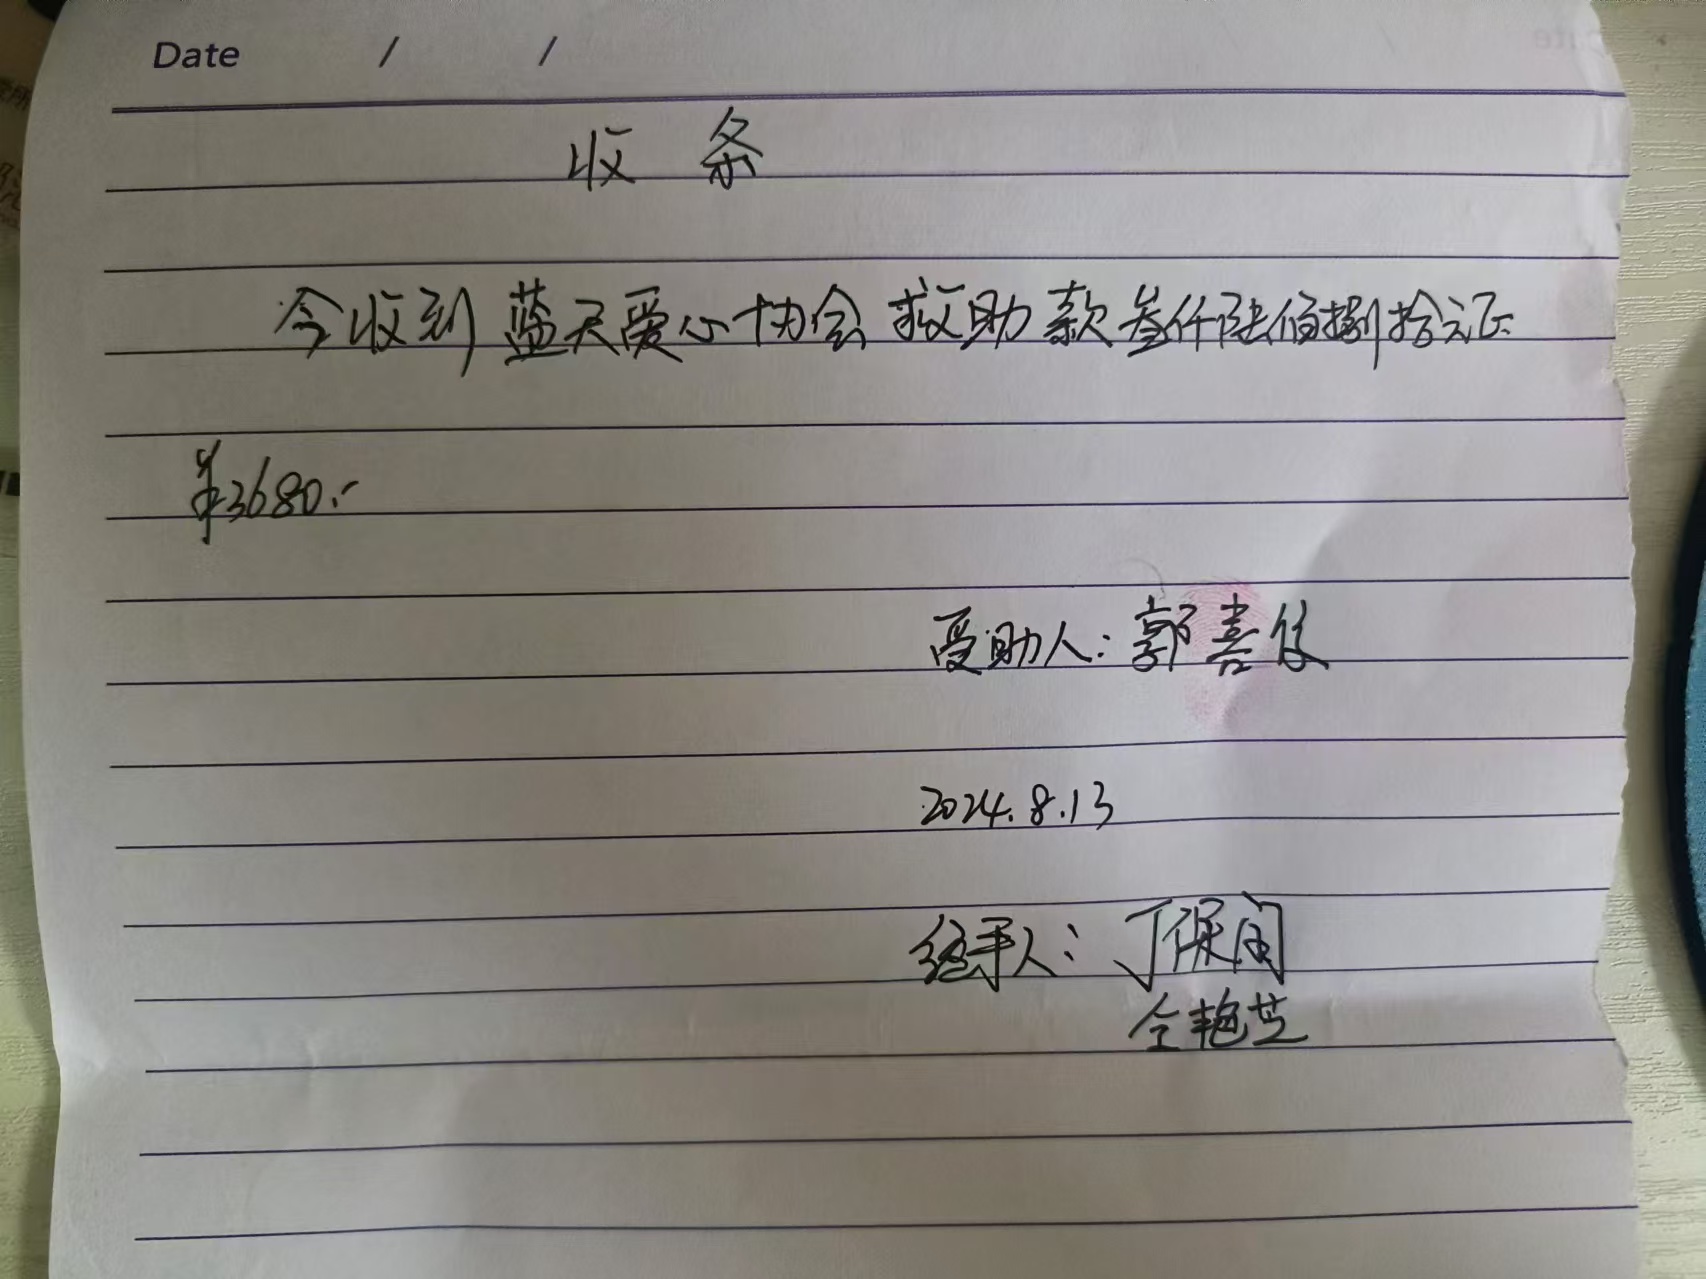 Date / /
收条
今收到蓝天爱心协会救助款叁仟陆佰捌拾元正
¥3680.-
受助人：郭喜俊
2024.8.13
经手人：丁保闰
仝艳芝